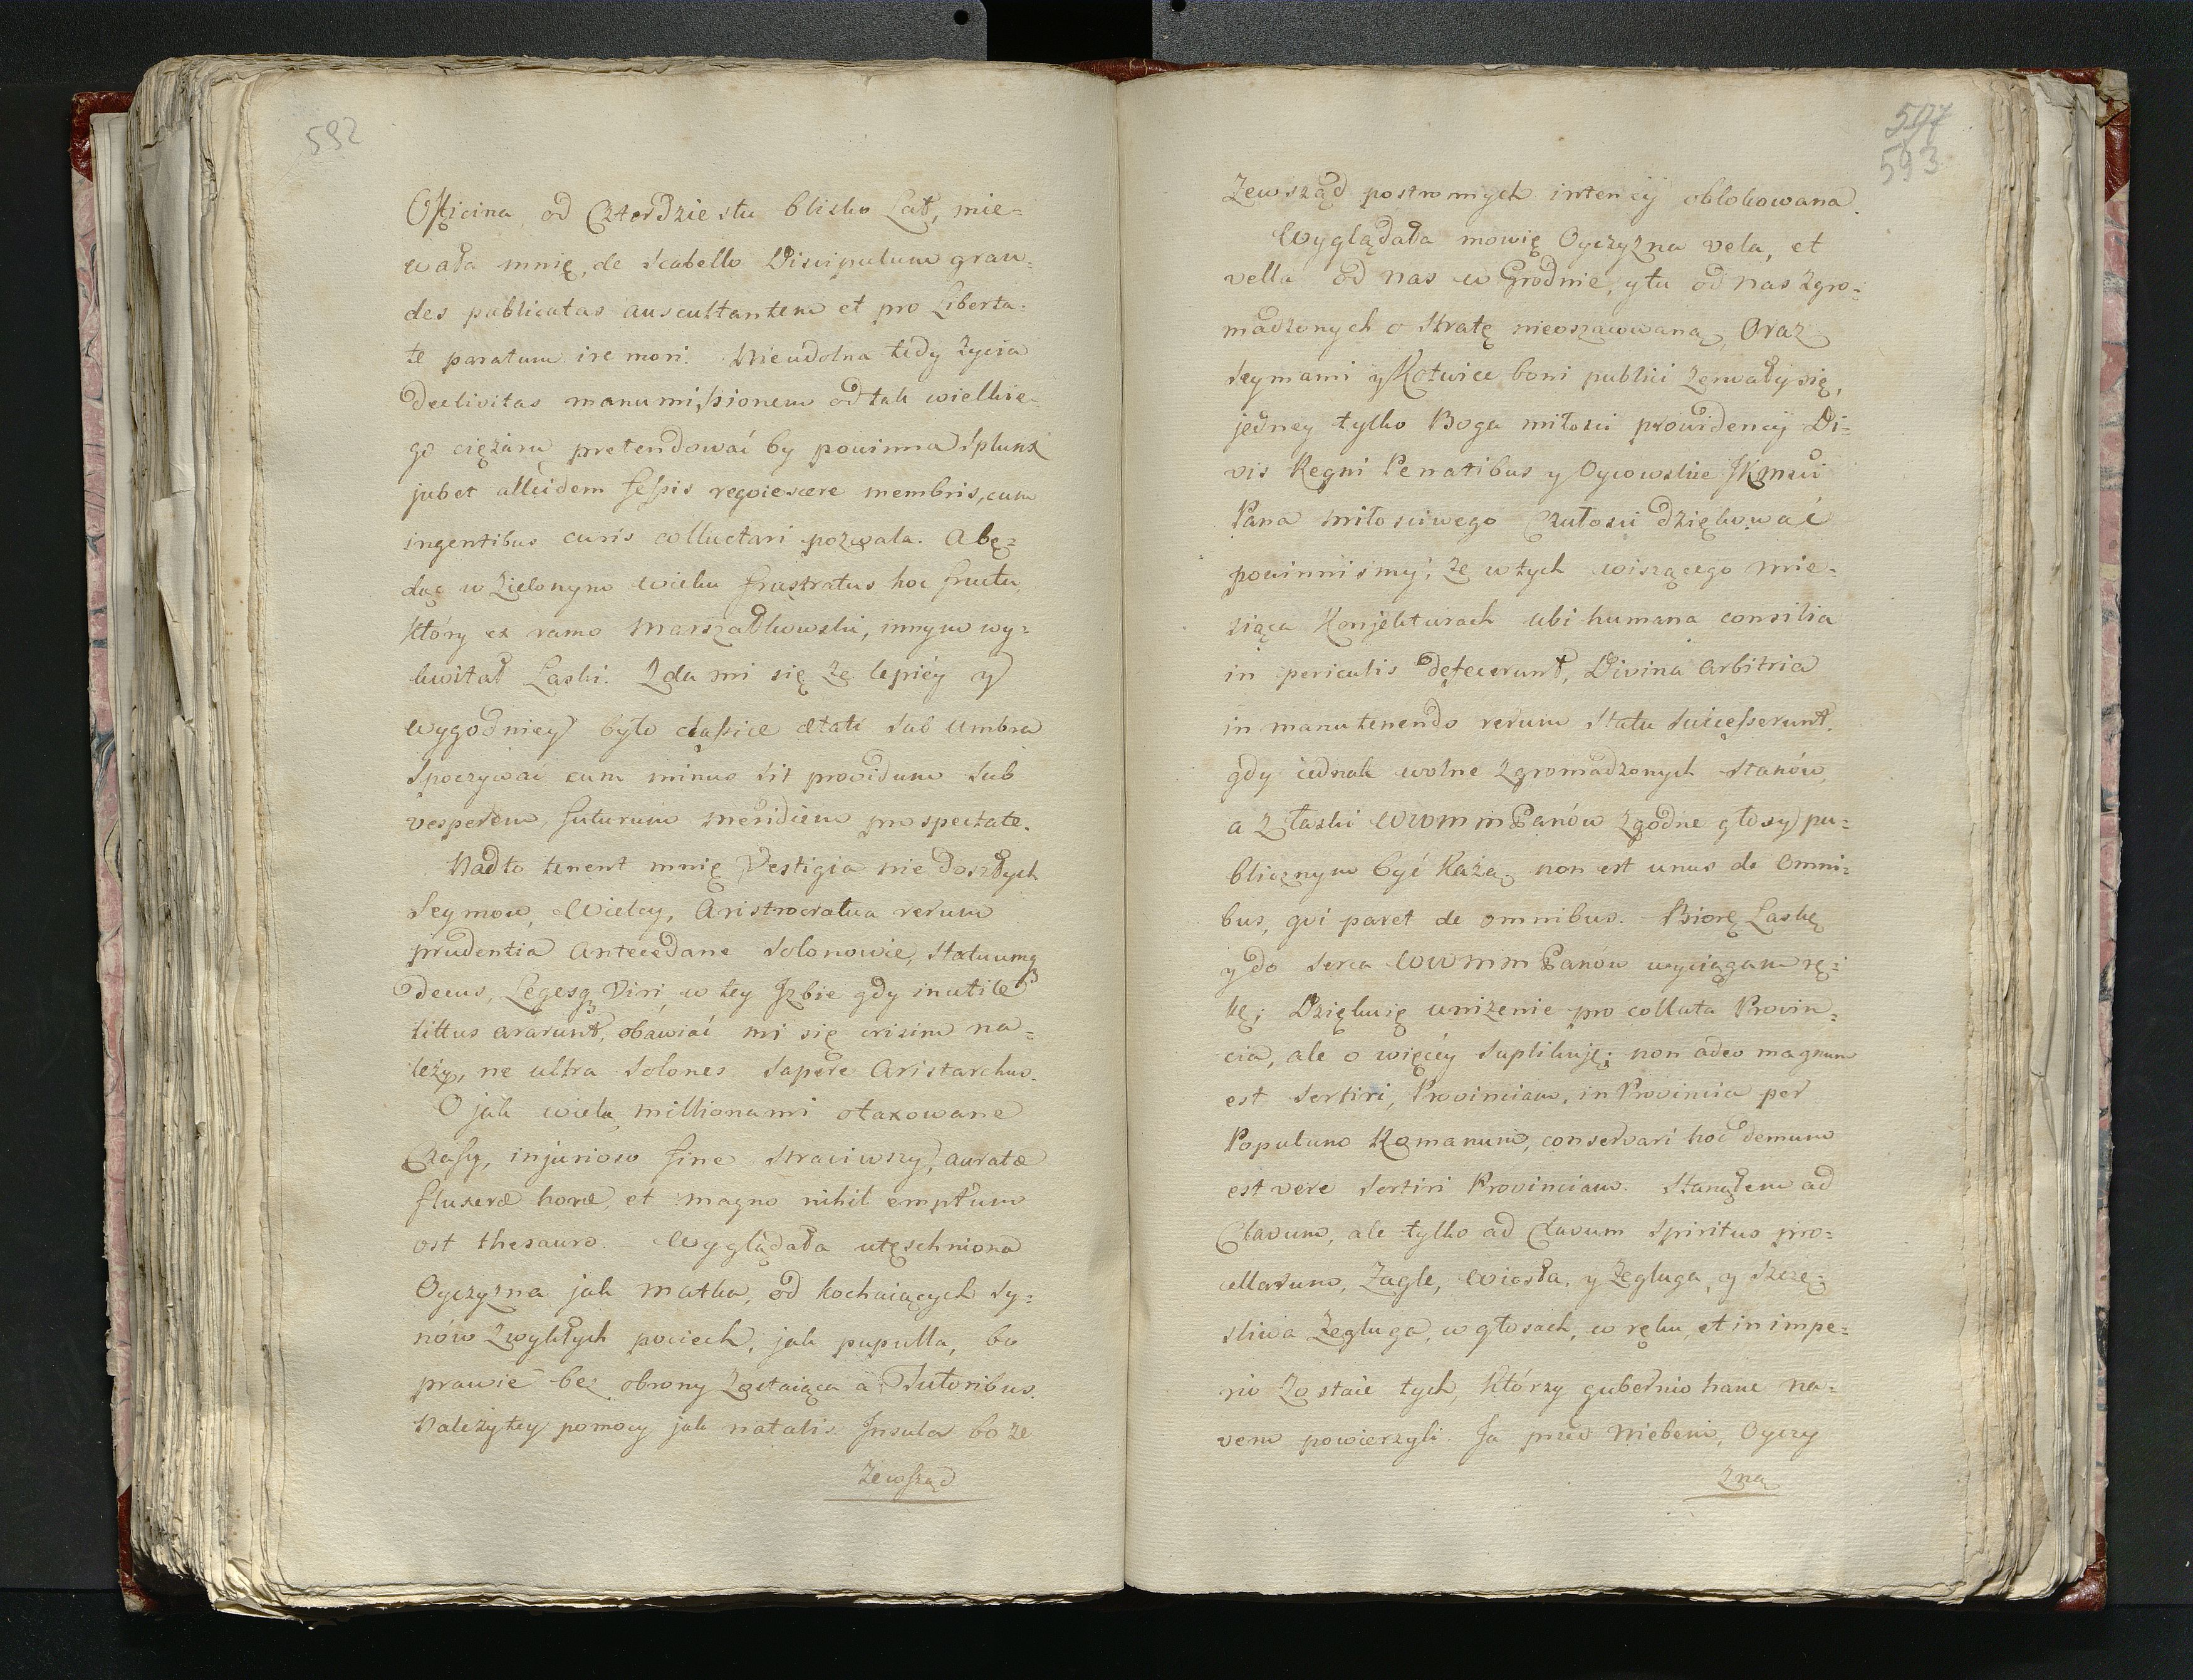 592
Officina od Czterdziestu blisko Lat, mie=
wała mnię, de Scabello Discipulum gran=
des publicatas auscultantem et pro Liberta=
te paratum ire mori. Nieudolna tedy życia
declivitas manumissionem od tak wielkie=
go ciężaru pretendować by powinna
jubet allcidem fessis reqviescere membris, cum
ingentibus curis colluctari pozwala. A bę=
dąc w Zielonym wieku frustratus hoc fructu,
który ex ramo Marszałkowski, innym wy=
kwitał Laski. Zda mi się że lepiéy y
wygodniey było classicæ ætati sub umbra
spoczywać cum minus sit providum sub
vesperem, futurum meridiem prospectate.
Nadto tenent mnię Vestigia nie doszłych
Seymow, Wielcy, Aristocratua rerum
prudentia Antecedane Solonowie, Statuumq3
decus, Legesq3 Viri w tey Jzbie gdy inutile
littus ararunt, obáwiać mi się crisim na=
leży, ne ultra Solones sapere Aristarchus.
O jak wielu millionami otaxowane
Czasy, injurioso fine straciwszy, auratæ
fluxeræ horæ, et magno nihil emptum
est thesauro. Wyglądała utęschniona
Oyczyzna jak Matka, od kochaiących Sy=
nów Zwykłych pociech, jak pupulla, bo
prawie bez obrony Zostaiąca a Tutoribus.
Należytey pomocy jak natalis Jnsula bo ze
zewsząd
594
593
Zewsząd postronnych intencij oblokowana.
Wyglądała mowię Oyczyzna vela, et
vella od nas w Grodnie, y tu od nas Zgro=
madzonych o Stratę nieoszacowaną, Oraz
Seymami y Kotwice boni publici Zerwały się,
jedney tylko Boga miłości prowidencij Di=
vis Regni Penatibus y Oycowskie JKmści
Pana Miłościwego Czułości dziękować
powinniśmy, że w tych wiszącego mie=
siąca Konjekturach ubi humana consilia
in periculis defecerunt, Divina arbitria
in manutenendo rerum Statu successerunt.
gdy iednak wolne Zgromadzonych Stanów,
a Z łaski WWmm Panów Zgodne głosy pu=
blicznym być Każą, non est unus de Omni=
bus, qvi paret de omnibus. Biorę Laskę
y do Serca WWmm Panów wyciągam rę=
kę; Dziękuię uniżenie pro collata Provin=
cia, ale o więcéy Supplikuję; non adeo magnum
est Sortiri, Provinciam, in Provincia per
Populum Romanum, conservari hoc demum
est vere Sortiri Provinciam. Stanąłem ad
Clavum, ale tylko ad Clavum Spiritus pro=
cellarum, Zagle, Wiosła, y Zegluga, y Szczę=
śliwa Zegluga, w głosach, w ręku, et in impe=
rio Zostaie tych, którzy gubernio hanc na=
vem powierzyli. Ja przed Niebem, Oyczy
zną